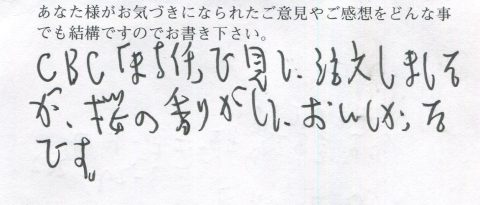 あなた様がお気づきになられたご意見やご感想をどんな事
でも結構ですのでお書き下さい。
CBC「ほう件」で見て、注文しました
が、桜の香りがして、おいしかった
です。